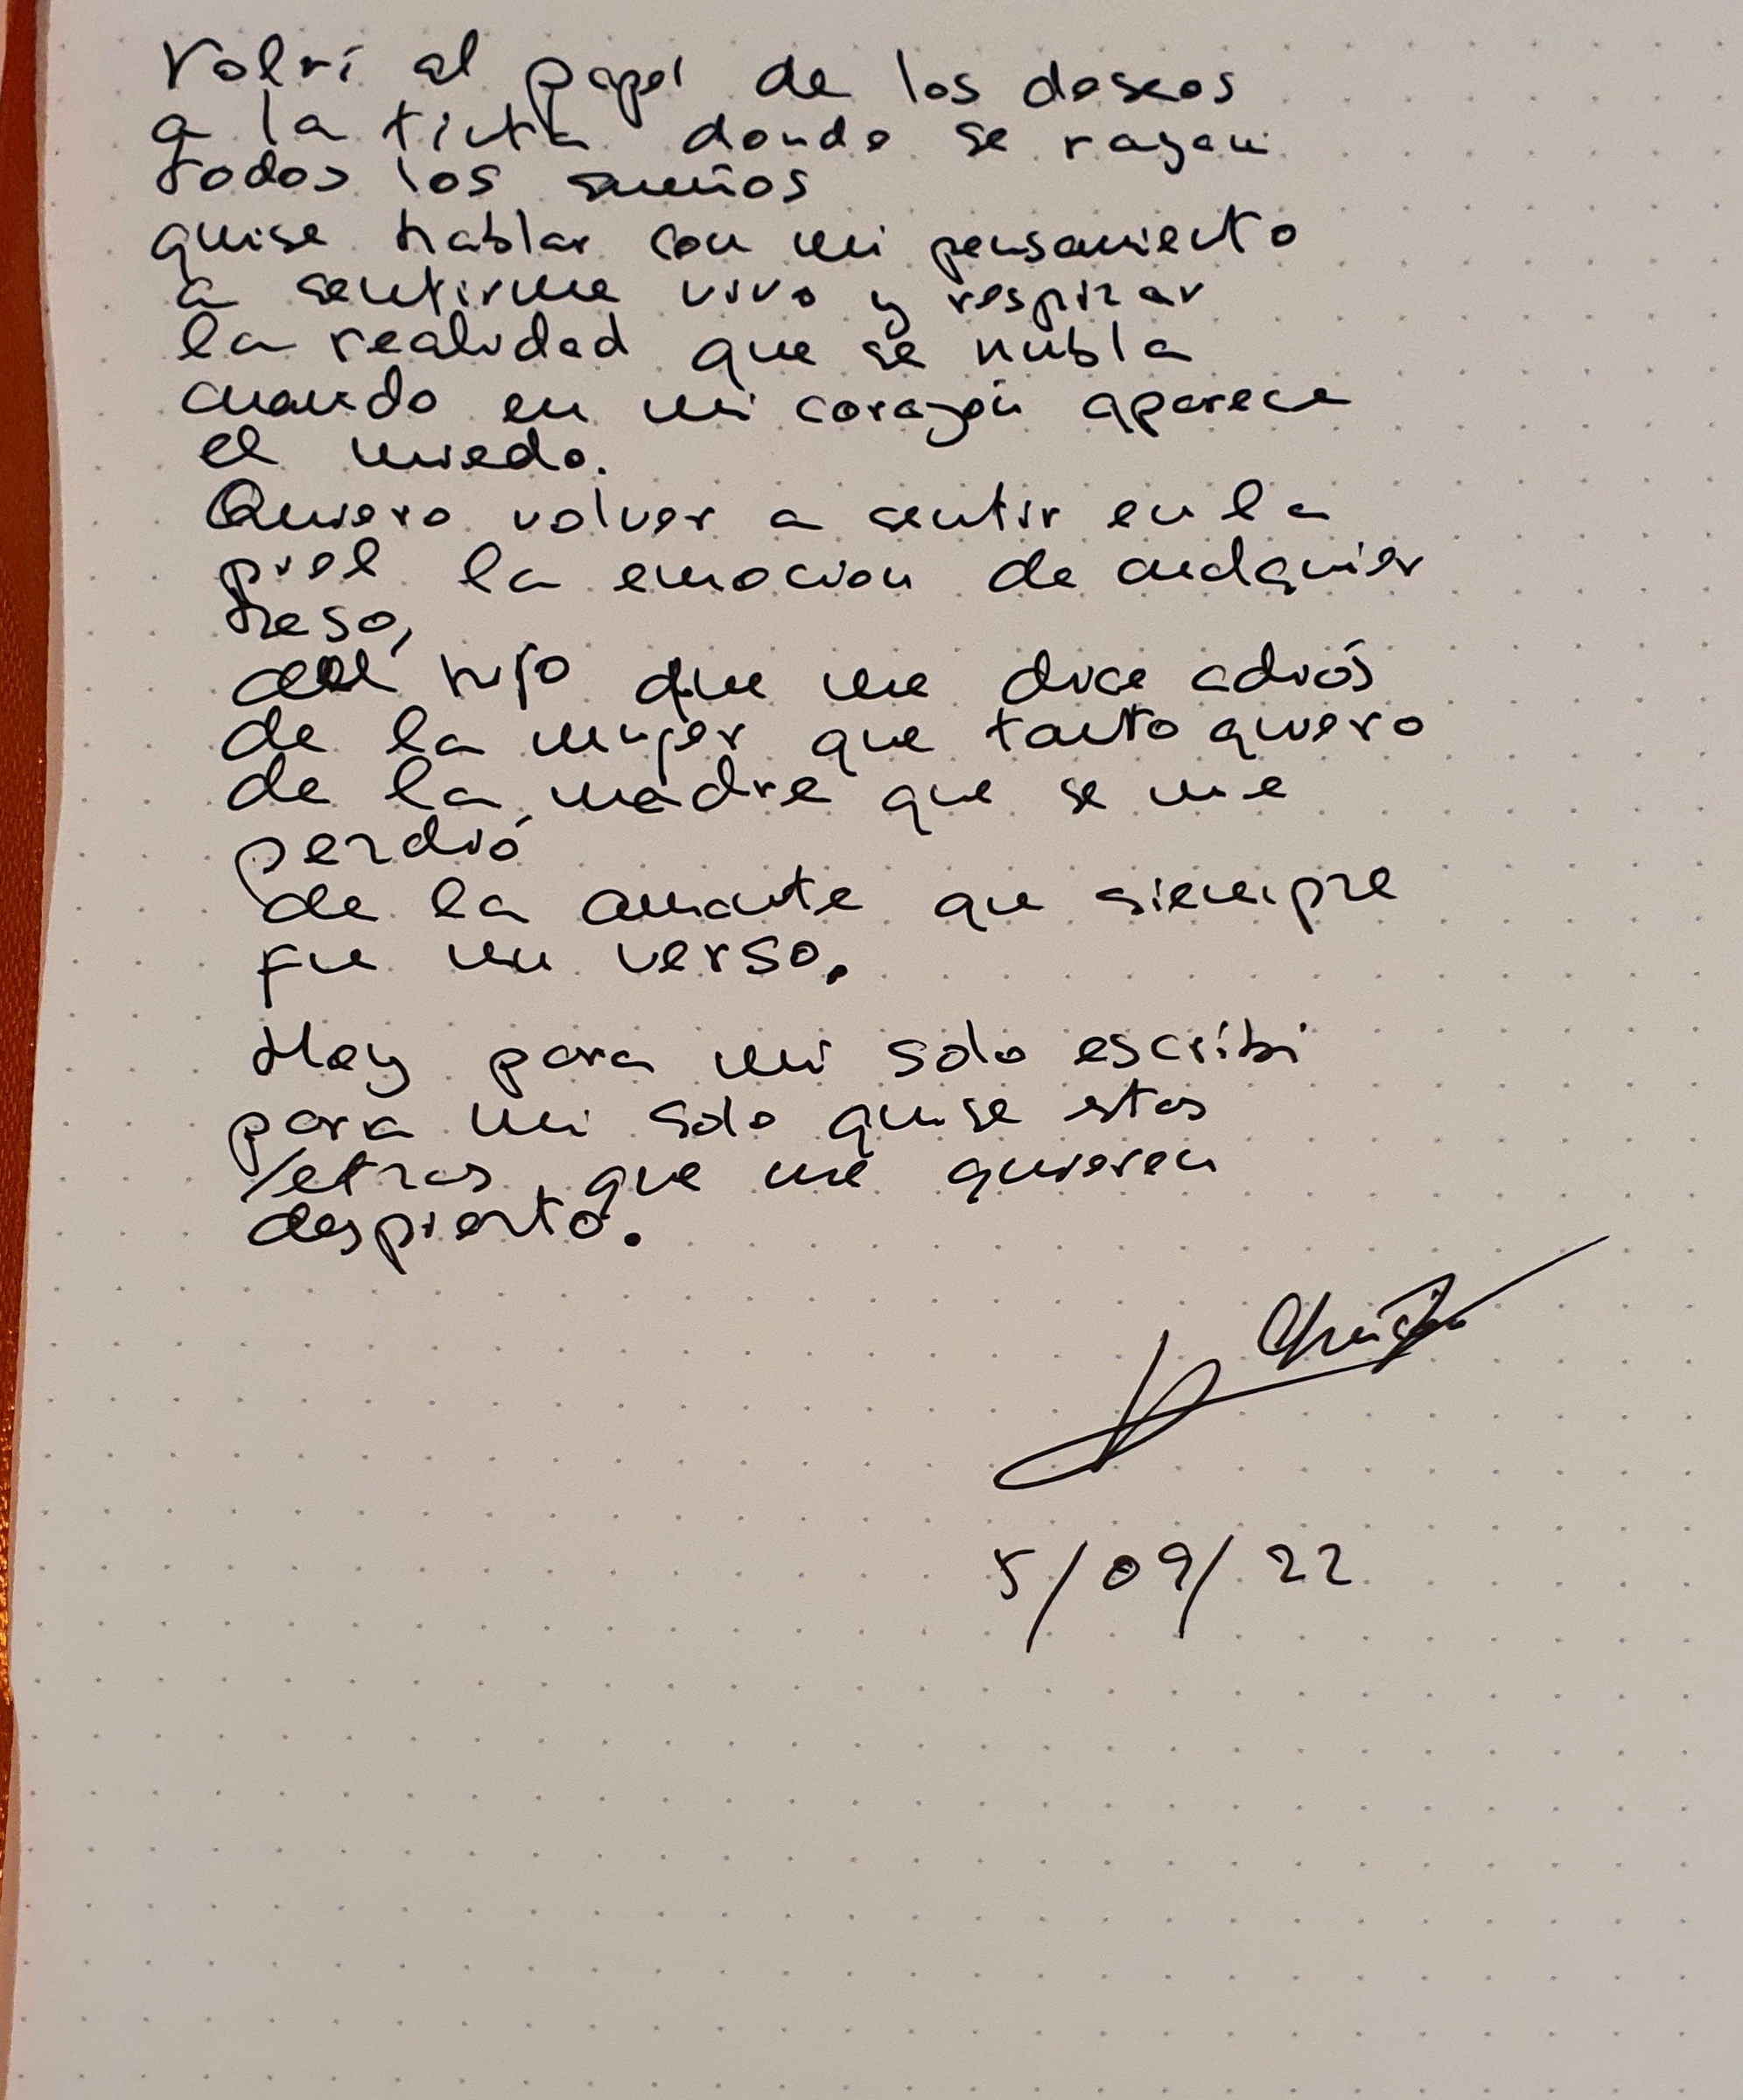 Volví al papel de los deseos
a la tinta donde se rasgan
todos los sueños
quise hablar con mi pensamiento
a sentirme vivo y respirar
la realidad que se nubla
cuando en mi corazón aparece
el miedo.
Quiero volver a sentir en la
piel la emocion de cualquier
beso,
del hijo que me dice adiós
de la mujer que tanto quiero
de la madre que se me
perdió
de la amante que siempre
fue un verso.
Hoy para mi solo escribi
para mi solo quise estas
letras, que me quieren
despierto.
5/09/22